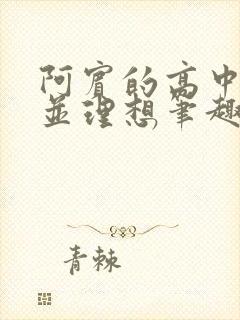 阿宾的高中
並理想筆趣
青棘